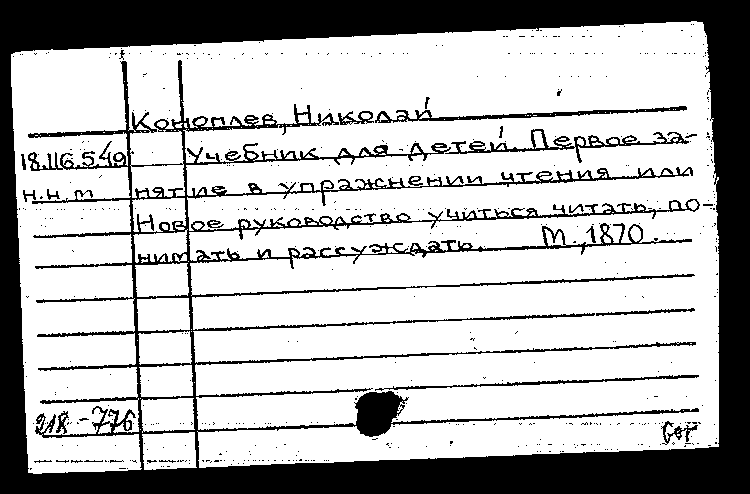 Коноплев, Николай
18.116.5.49 Учебник для детей. Первое за-
н.н.т нятие в упражнении чтения или
Новое руководство учиться читать, по-
нимать и рассуждать. М., 1870.
218-776